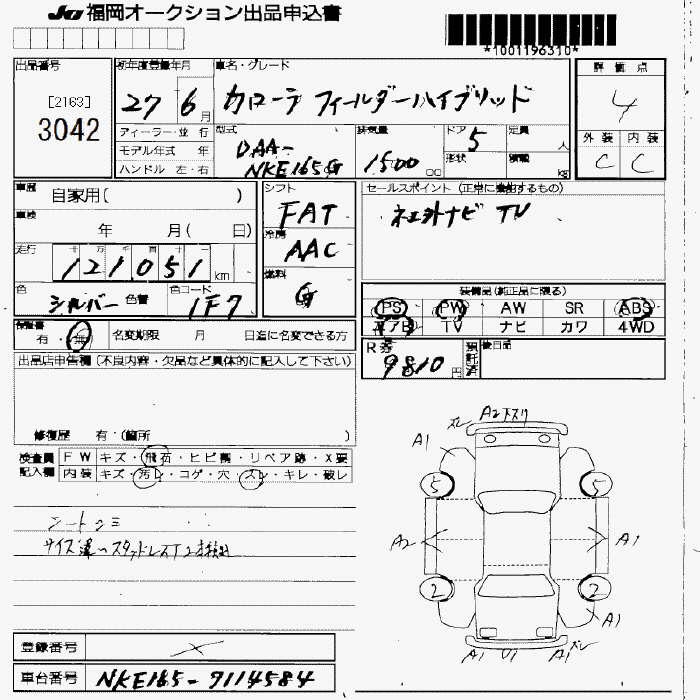 JU 福岡オークション出品申込書
*1001196310*
出品番号
[2163]
3042
初年度登録年月
27 6月
車名・グレード
カローラ フィールダーハイブリッド
評価点
4
外装 内装
C C
ディーラー・並行
モデル年式 年
ハンドル 左・右
型式
DAA-
NKE165G
排気量
1500
ドア 5
形状
定員 人
積載 kg
車歴
自家用( )
車検
年 月( 日)
走行
十万千百十一
121,051 km
色
シルバー 色替
色コード
1F7
シフト
FAT
冷房
AAC
燃料
G
セールスポイント (正常に機能するもの)
ネエ外ナビ TV
装備品(純正品に限る)
PS PW AW SR ABS
エアB TV ナビ カワ 4WD
R券
9810円
預託済
後日品
保証書
有・無
名変期限 月 日迄に名変できる方
出品店申告欄(不良内容・欠品など具体的に記入して下さい)
修復歴 有・(箇所 )
検査員
記入欄
FW キズ・飛石・ヒビ割・リペア跡・X要
内装 キズ・汚レ・コゲ・穴・スレ・キレ・破レ
シートクミ
サイズ違いスタッドレスT2本積込
ズレ A2ススリ
A1
5 5
A2 A1
2 2
A1
A1 U1 A1 ズレ
登録番号
車台番号 NKE165-7114584